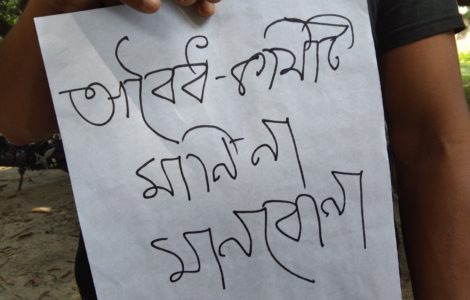 অবৈধ-কমিটি
মানিনা
মানবোনা